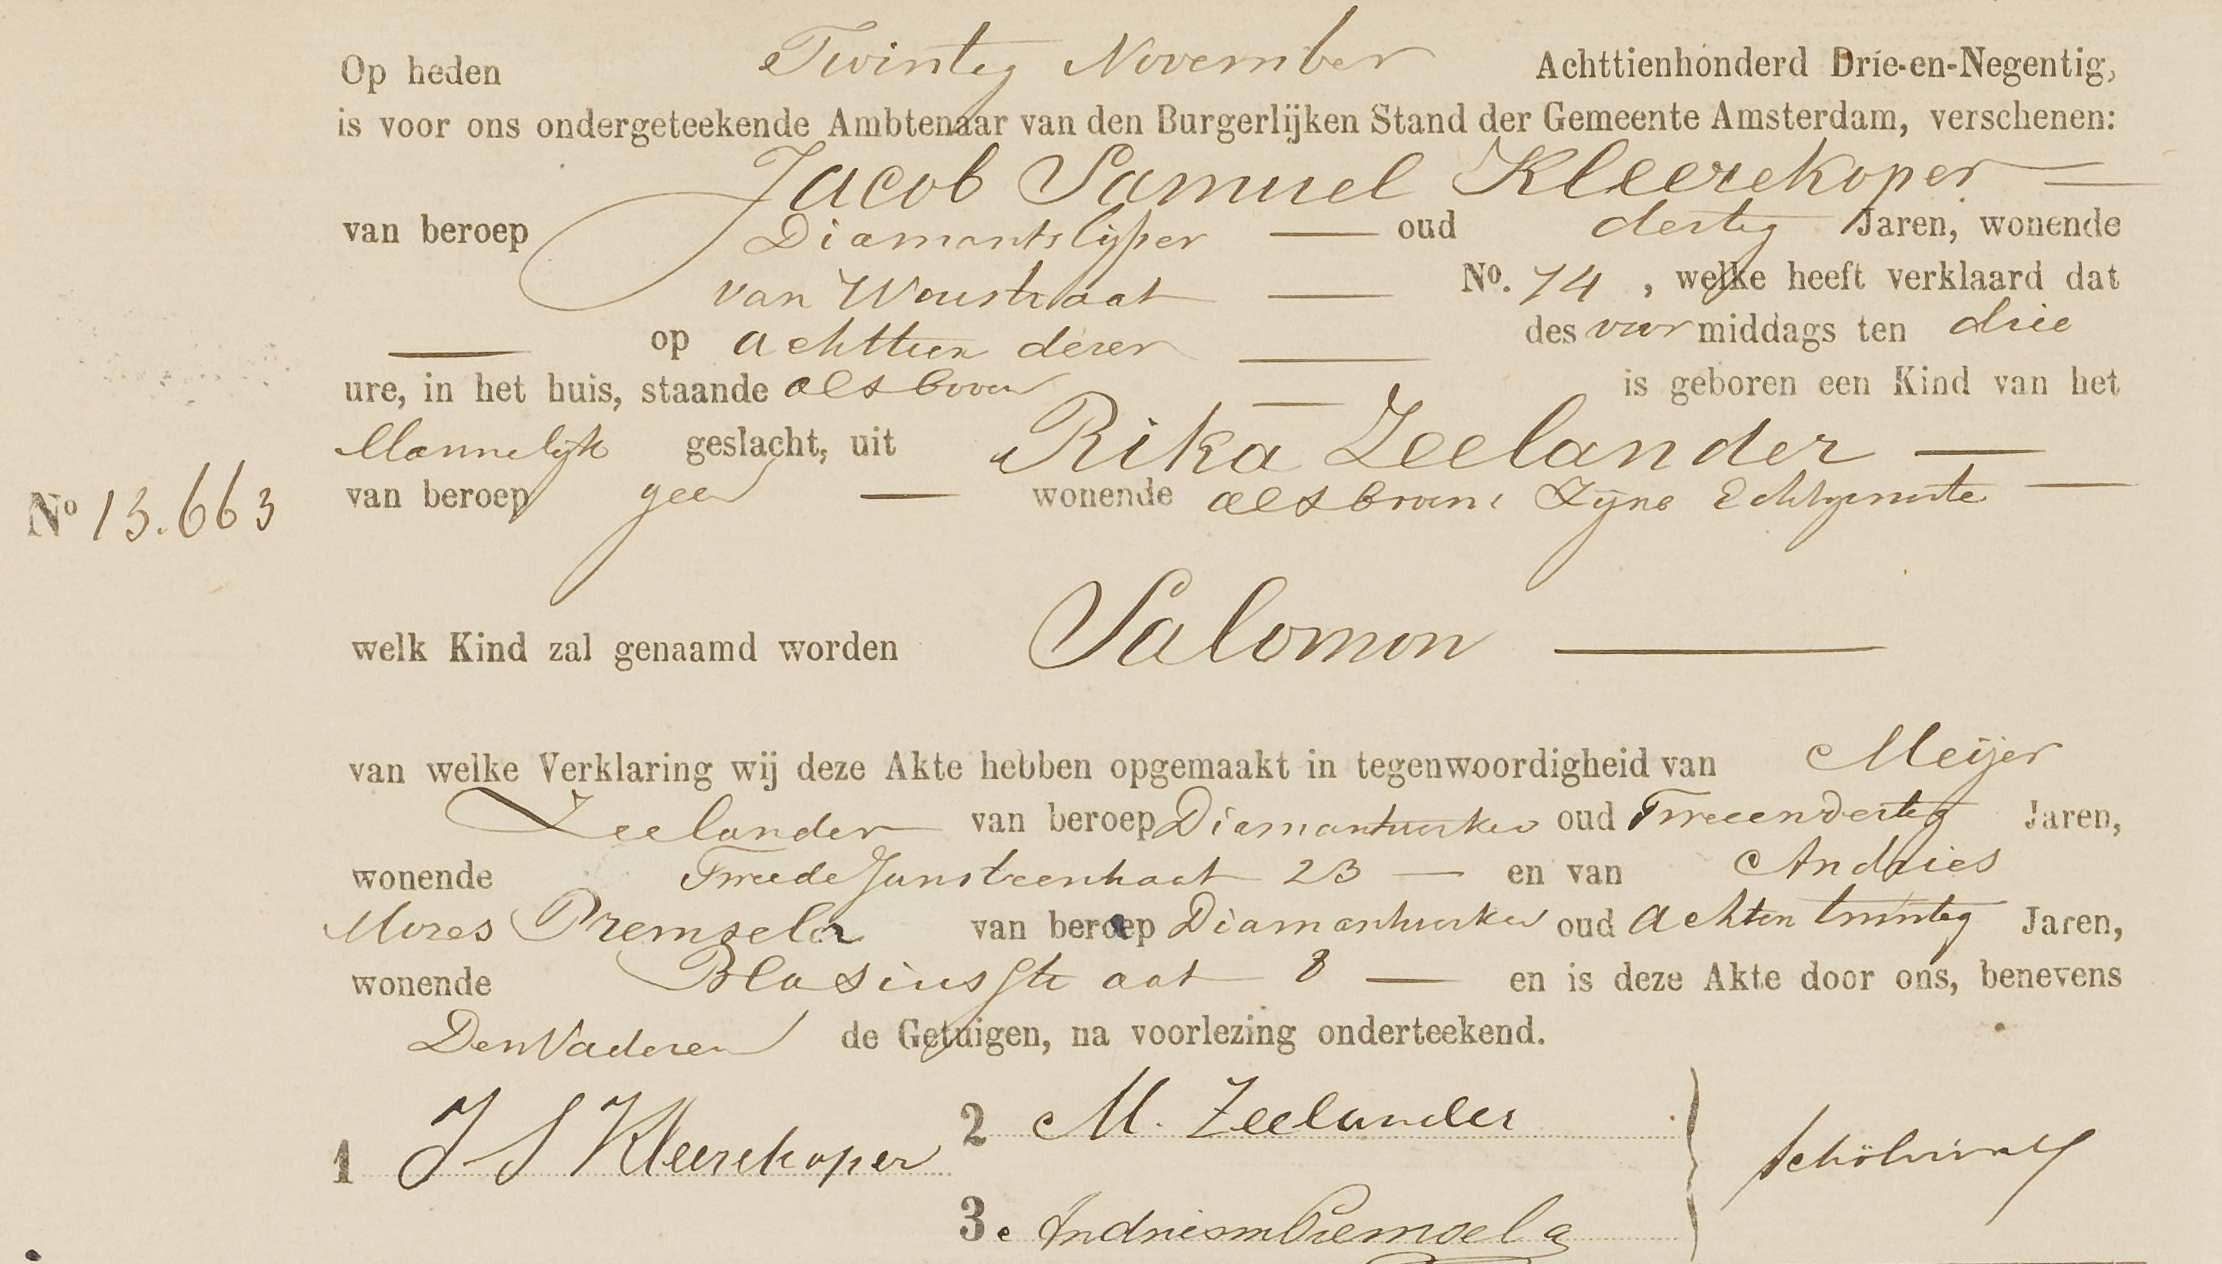 Op heden Twintig November Achttienhonderd Drie-en-Negentig,
is voor ons ondergeteekende Ambtenaar van den Burgerlijken Stand der Gemeente Amsterdam, verschenen:
Jacob Samuel Kleerekoper
van beroep Diamantslijper oud dertig Jaren, wonende
van Woustraat No. 74, welke heeft verklaard dat
op achttien dezer des voormiddags ten drie
ure, in het huis, staande als boven is geboren een Kind van het
Mannelijk geslacht, uit Rika Zeelander
No 13.663 van beroep geen wonende als boven, Zijne Echtgenoote
welk Kind zal genaamd worden Salomon
van welke Verklaring wij deze Akte hebben opgemaakt in tegenwoordigheid van Meijer
Zeelander van beroep Diamantwerker oud Tweeendertig Jaren,
wonende Tweede Jansteenstraat 23 en van Andries
Mozes Premsela van beroep Diamantwerker oud Achtentwintig Jaren,
wonende Blasiusstraat 8 en is deze Akte door ons, benevens
Den Vader en de Getuigen, na voorlezing onderteekend.
1 J S Kleerekoper
2 M. Zeelander
3. Andries m Premsela